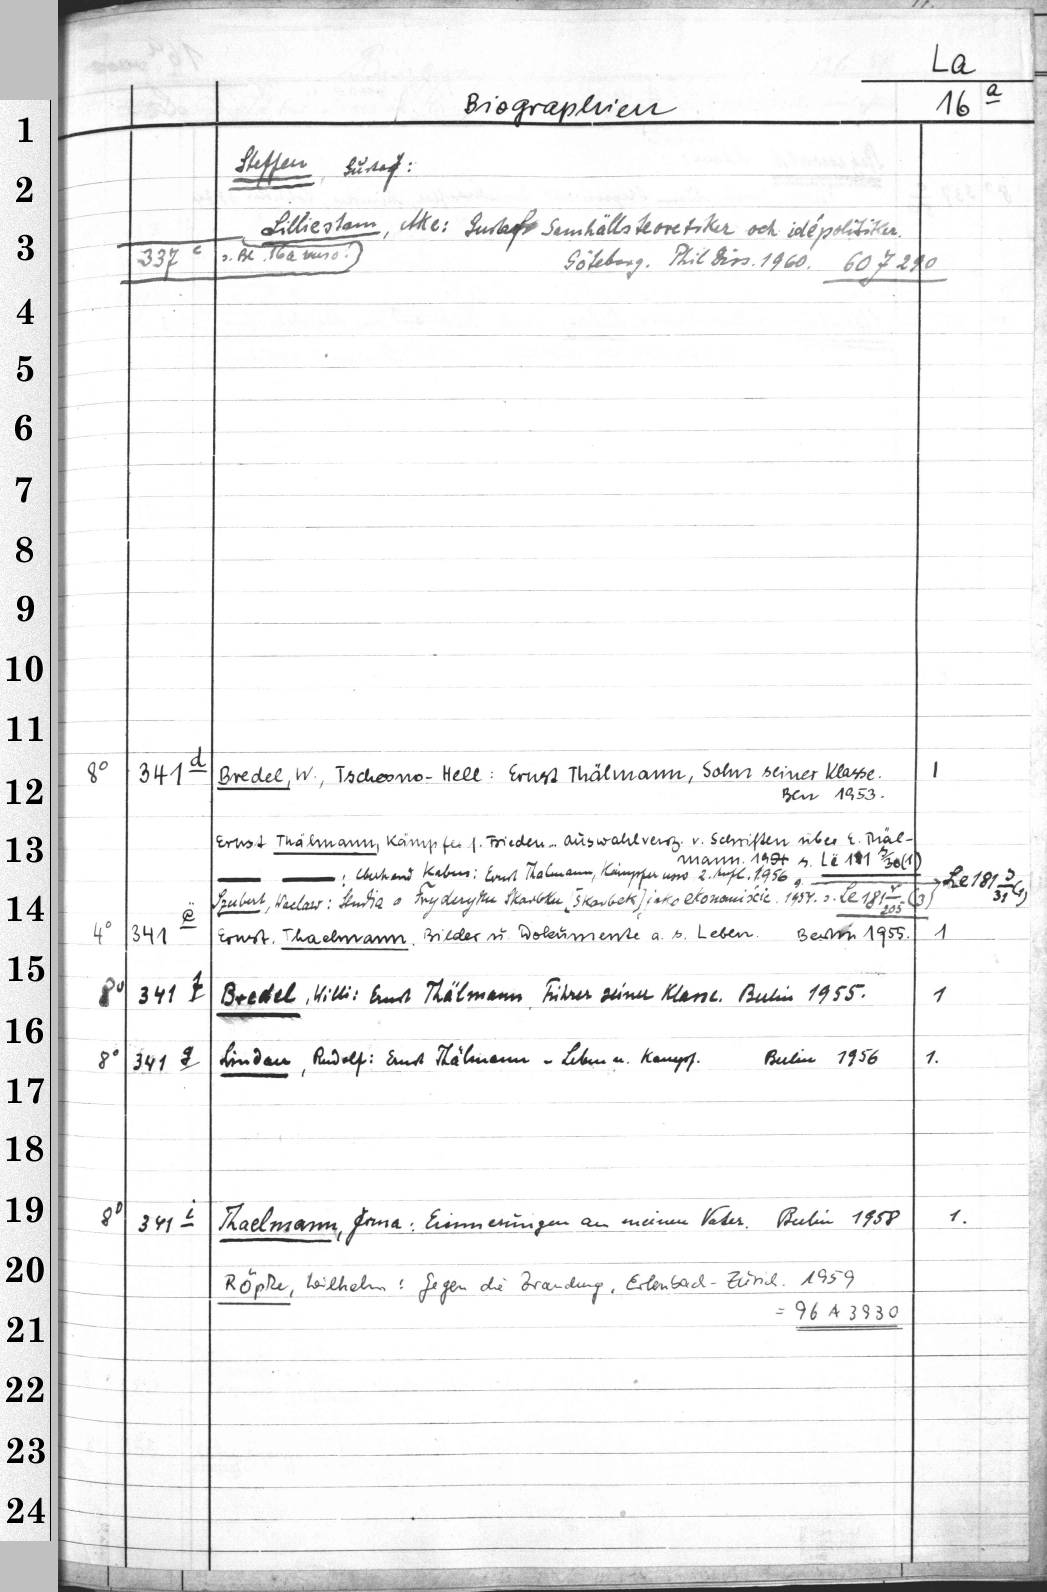 La
Biographien 16 a
Steffen, Gustaf:
Lilliestam, Åke: Gustaf Samhällsteoretiker och idépolitiker.
337 c s. Bl. 16a verso!)
Göteborg. Phil Diss. 1960. 60 7 290
8° 341 d Bredel, W., Tschesno-Hell: Ernst Thälmann, Sohn seiner Klasse. 1
Bln 1953.
Ernst Thälmann, Kämpfer f. Frieden.. Auswahlverz. v. Schriften über E. Thäl-
mann. s. Le 181 30(1)
: Ernst Thälmann, Kämpfer 2. Aufl. 1956 s. Le 181 31
Szubert, Wacław: Studia o Fryderyku Skarbku [Skarbek] jako ekonomiście. 1954. s. Le 181 205 (3)
4° 341 e Ernst. Thaelmann. Bilder u. Dokumente a. s. Leben. Berlin 1955. 1
8° 341 f Bredel, Willi: Ernst Thälmann Führer seiner Klasse. Berlin 1955. 1
8° 341 g Lindau, Rudolf: Ernst Thälmann - Leben u. Kampf. Berlin 1956 1.
8° 341 i Thaelmann, Irma: Erinnerungen an meinen Vater. Berlin 1958 1.
Röpke, Wilhelm: Gegen die Brandung, Erlenbach-Zürich. 1959
= 96 A 3830
1
2
3
4
5
6
7
8
9
10
11
12
13
14
15
16
17
18
19
20
21
22
23
24